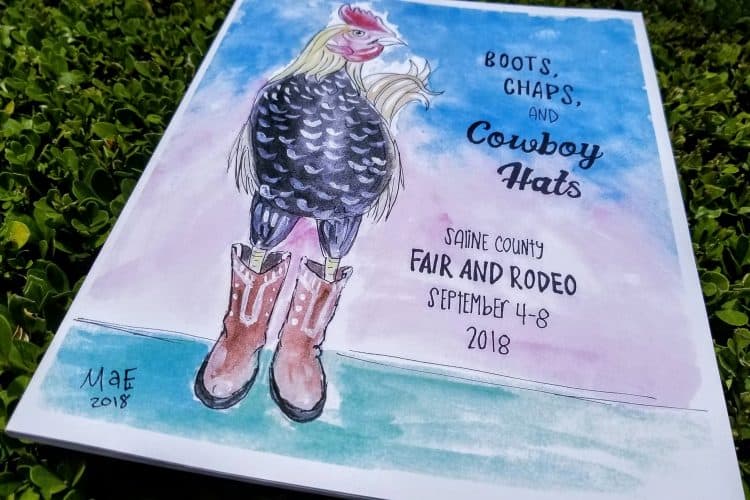 BOOTS,
CHAPS,
AND
Cowboy
Hats
SALINE COUNTY
FAIR AND RODEO
SEPTEMBER 4-8
2018
MaE
2018